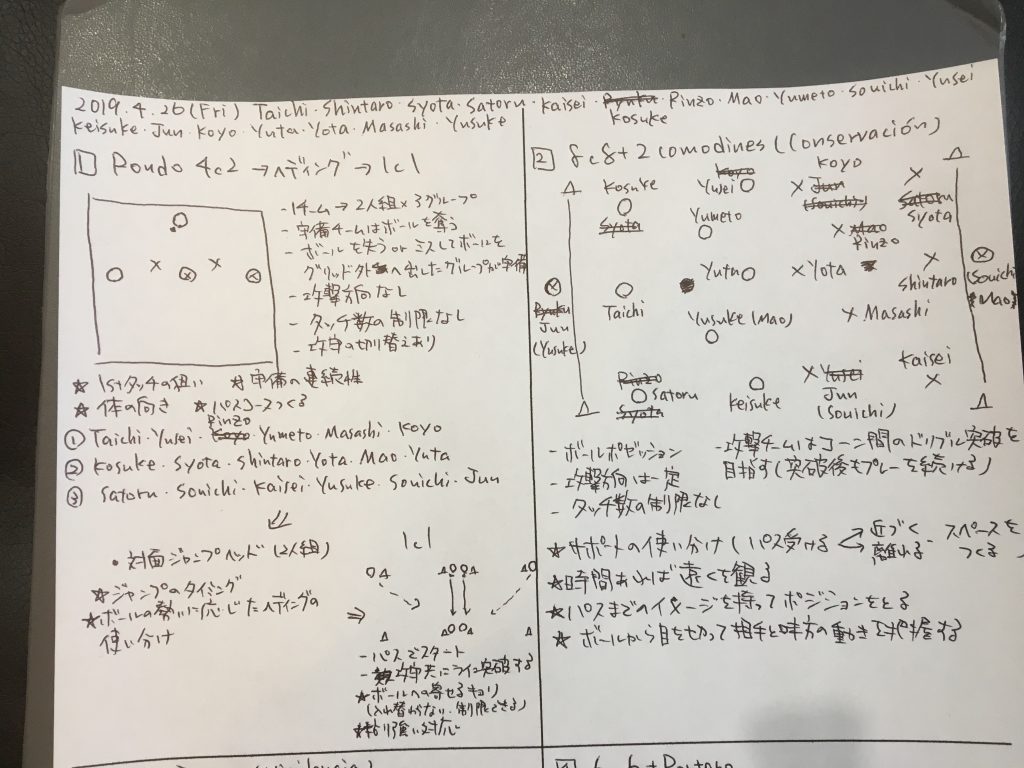 2019.4.26(Fri) Taichi・Shintaro・Syota・Satoru・Kaisei・Ryuku・Rinzo・Mao・Yumeto・Souichi・Yusei
Kosuke
Keisuke・Jun・Koyo・Yuta・Yota・Masashi・Yusuke
1 Rondo 4c2 →ヘディング→1c1
-1チーム→2人組×3グループ
-守備チームはボールを奪う
-ボールを失う or ミスしてボールを
グリッド外へ出したグループが守備
-攻撃方向なし
-タッチ数の制限なし
-攻守の切り替えあり
☆1stタッチの狙い ☆守備の連続性
☆体の向き ☆パスコースつくる
Rinzo
① Taichi・Yusei・Koyo・Yumeto・Masashi・Koyo
② Kosuke・Syota・Shintaro・Yota・Mao・Yuta
③ Satoru・Souichi・Kaisei・Yusuke・Souichi・Jun
・対面ジャンプヘッド(2人組)
☆ジャンプのタイミング
☆ボールの勢いに応じたヘディングの
使い分け
1c1
-パスでスタート
-攻守共にライン突破する
☆ボールへの寄せるキョリ
(入れ替わらない・制限できる)
☆粘り強い対応
2 8c8+2 comodines (Conservación)
Kosuke
Syota
Koyo
Yusei
Koyo
Jun
(Souichi)
Satoru
Syota
Yumeto
Mao
Rinzo
Ryuku
Jun
(Yusuke)
Taichi
Yuta
Yota
Shintaro
(Souichi)
(Mao)
Yusuke (Mao)
Masashi
Rinzo
Satoru
Syota
Keisuke
Yusei
Jun
(Souichi)
Kaisei
-ボールポゼッション
-攻撃方向は一定
-タッチ数の制限なし
-攻撃チームはコーン間のドリブル突破を
目指す(突破後もプレーを続ける)
☆サポートの使い分け(パス受ける 近づく 離れる - スペースを
つくる)
☆時間あれば遠くを観る
☆パスまでのイメージを持ってポジションをとる
☆ボールから目を切って相手と味方の動きを把握する